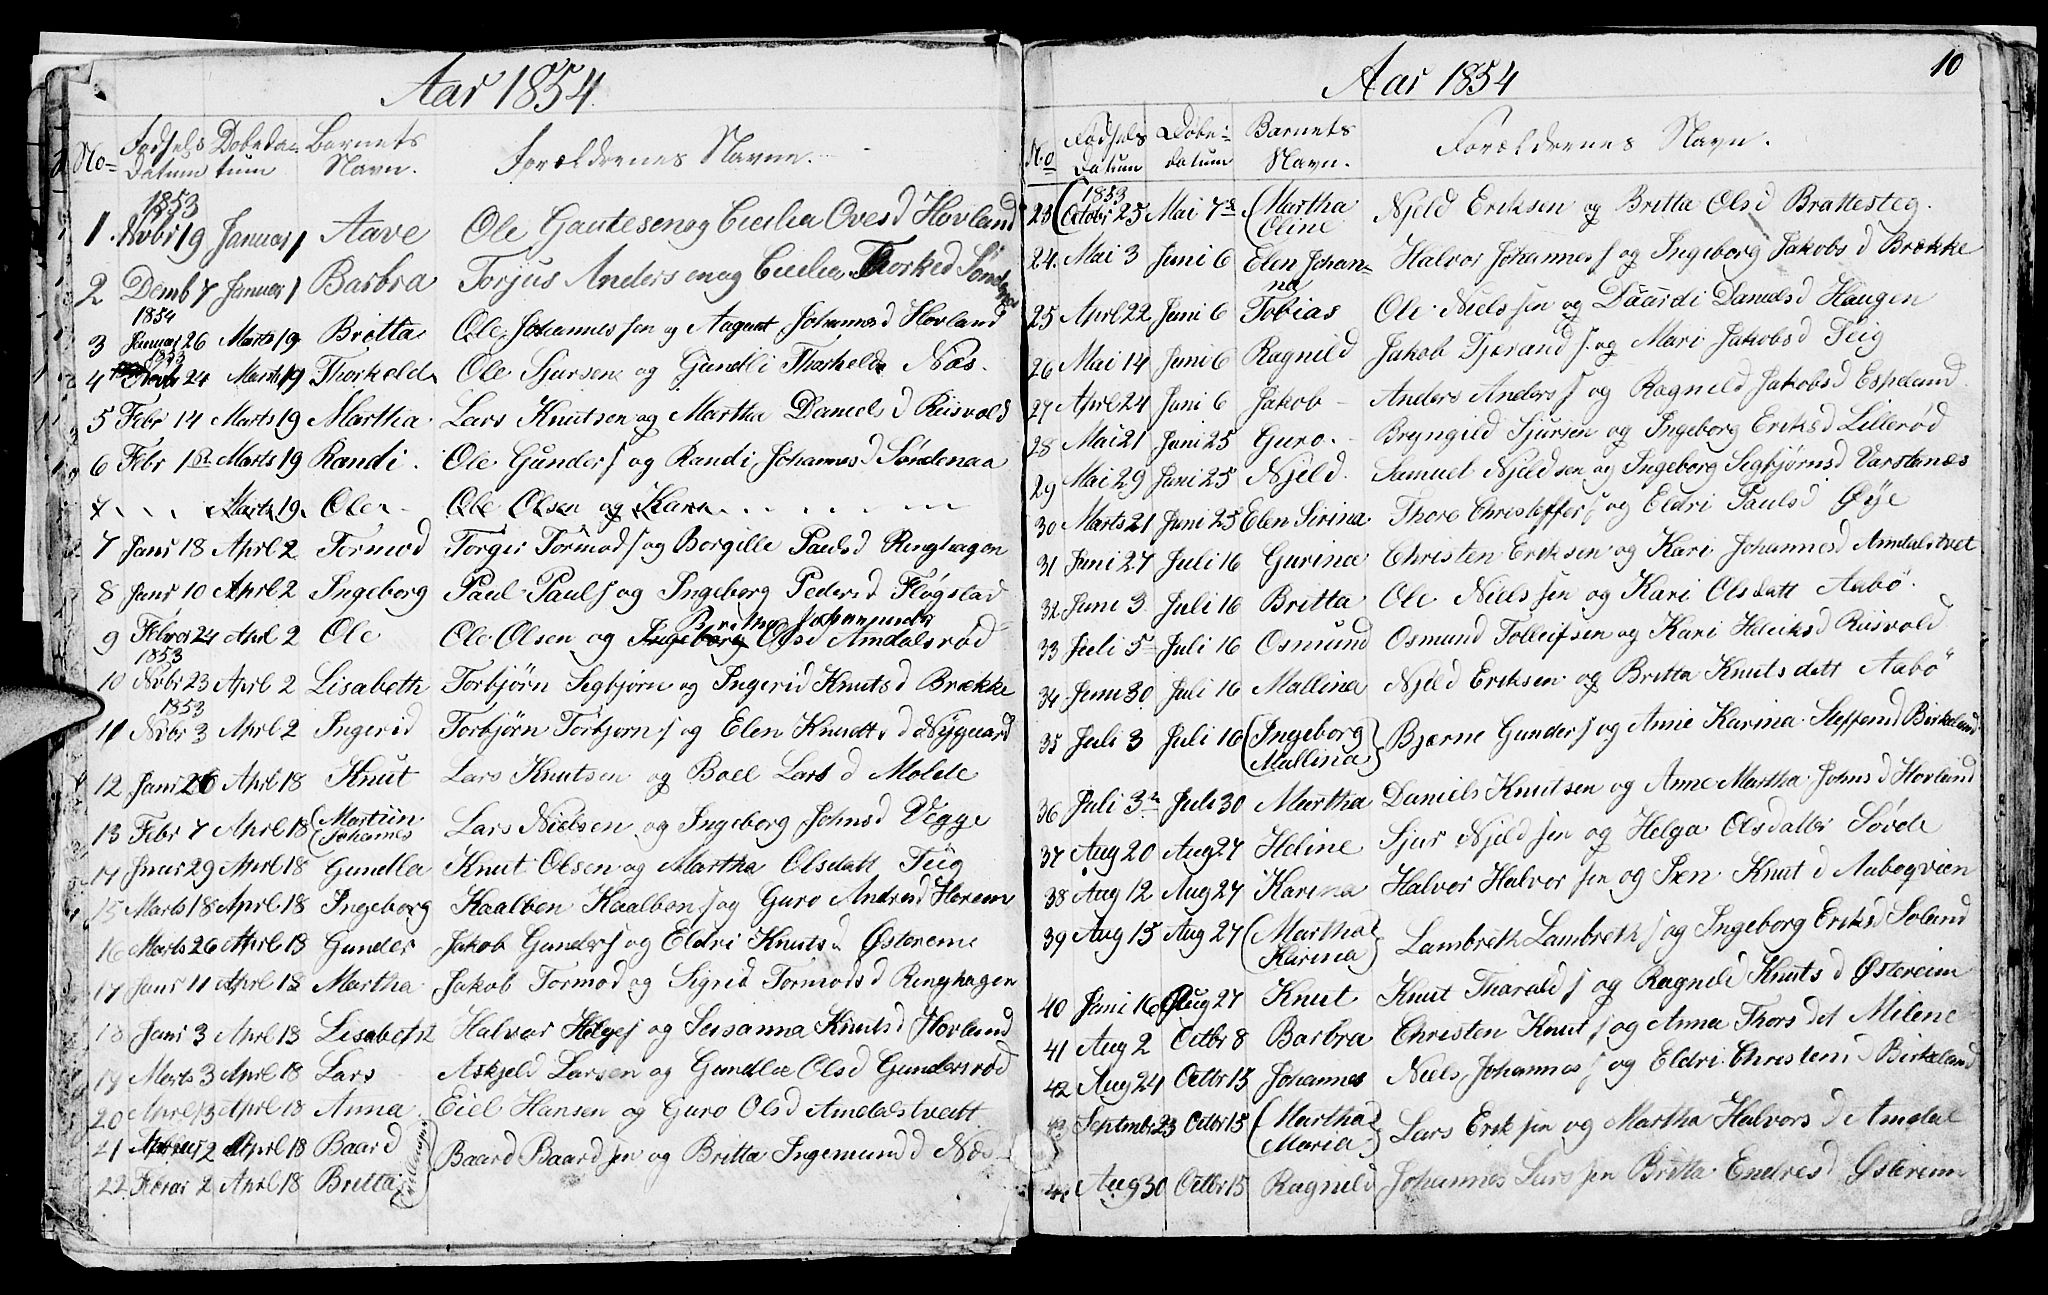 Aar 1854.
No Fødsels Datum Dobeda-tum Barnets Navn. Forældrenes Navne.
1853
1. Nvbr 19 Januar 1 Aave Ole Gautesen og Cecilia Ovesd Hovland
2 Decmb 7 Januar 1 Barbra Torjus Andersen og Cecilia Thorked Söndenaa
1854
3 Januar 26 Marts 19 Britta Ole Johannessen og Aagaat Johannesd Hovland
1853
4 24 Marts 19 Thorkeld Ole Sjursen og Gundli Thorkelds Næs.
5 Febr 14 Marts 19 Martha Lars Knutsen og Martha Daniels d Riisvold
6 Febr 1st Marts 19 Randi. Ole Gunders og Randi Johannesd Søndenaa
7 Marts 19. Ole Ole Olsen og Kari
7 Janr 18 Aprl 2 Tormod Torger Tormods og Borgille Paulsd Ringhagen
8 Janr 10 Aprl 2 Ingeborg Paul Pauls og Ingeborg Pedersd Fløgstad
Britha Johannesdr
9 Febr 24 Aprl 2 Ole Ole Olsen og Ingeborg Olsd Amdalsrød
1853
10 Nvbr 23 Aprl 2 Lisabeth Torbjörn Segbjörn og Ingerid Knuts d Brække
1853
11 Nvbr 3 Aprl 2 Ingerid Torbjörn Torbjorns og Elen Knudts d Nygaard
12 Janr 26 Aprl 18 Knut Lars Knutsen og Boel Lars d Molde
13 Febr 7 Aprl 18 (Martin Johannes Lars Nielsen og Ingeborg Johnsd Vegge
14 Janr 29 Aprl 18 Gundla Knut Olsen og Martha Olsdatt Tüg
15 Marts 18 Aprl 18 Ingeborg Kaalben Kaalbens og Guro Andresd Horeim
16 Marts 26 Aprl 18 Gunder Jakob Gunders og Eldri Knutsd Østereme
17 Janr 11 Aprl 18 Martha Jakob Tormod og Sigrid Tormods d Ringhagen
18 Janr 3 Aprl 18 Lisabeth Halvor Helges og Susanna Knutsd Hovland
19 Marts 3 Aprl 18 Lars Askjeld Larsen og Gundla Olsd Gundersrød
20 Aprl 13 Aprl 18 Anna. Eiel Hansen og Guro Olsd Amdalstvedt
21 2 Aprl 18 Baard Baard Baardsen og Britta Ingemund d Næs
22 Febrar 2 Aprl 18 Britta (Tvillinger)
10
Aar 1854
No Fødsels Datum Døbe-datum Barnets Navn. Forældrenes Navn.
1853
23 (Octobr 25 Mai 7de (Martha Oline Njeld Eriksen og Britta Olsd Brattesteg.
24. Mai 3 Juni 6 Elen Johanna Halvor Johannes s og Ingeborg Jakobs d Brekke
25 Aprl 22 Juni 6 Tobias Ole Nielssen og Daardi Danielsd Haugen
26 Mai 14 Juni 6 Ragnild Jakob Tjerand s. og Mari Jakobsd Tüg
27 Aprl 24 Juni 6 Jakob - Anders Anders s og Ragnild Jakobsd Espeland
28 Mai 21 Juni 25 Guro. - Bryngild Sjursen og Ingeborg Eriksd Lillerød
29 Mai 29 Juni 25 Njeld. Samuel Njeldsen og Ingeborg Segbjørnsd Varstanæs
30 Marts 21 Juni 25 Elen Sirina Thore Christoffers og Eldri Paulsd Øye
31 Juni 27 Juli 16 Gurina Christen Eriksen og Kari Johannesd Amdalstvet
32 Juni 3. Juli 16 Britta Ole Nielssen og Kari Olsdatt Aabö.
33 Juli 5 Juli 16 Osmund Osmund Tolleifsen og Kari Heleiksd Riisvold
34 Juni 30 Juli 16 Mallina Njeld Eriksen og Britta Knutsdatt Aabö
35 Juli 3 Juli 16 (Ingeborg Mallina) Bjærne Gunders og Anne Karina Steffensd Birkeland
36 Juli 3 Juli 30 Martha Daniels Knutsen og Anne Martha Johns d Hovland
37 Aug 20 Aug 27 Heline Sjur Njeldsen og Helga Olsdatter Søvde
38 Aug 12 Aug 27 Karina Halvor Halvorsen og Sxn Knut d Aabøqvien
39 Aug 15 Aug 27 (Martha Karina) Lambreth Lambreths og Ingeborg Eriksd Soland
40 Juni 16 Aug 27 Knut Knut Tharalds og Ragnild Knuts d Østereim
41 Aug 2 Octbr 8 Barbra Christen Knuts og Anna Thorsdet Milene
42 Aug 24 Octbr 15 Johannes Niels Johannes s og Eldri Christend Birkeland
43 Septmbr 23 Octbr 15 (Martha Maria) Lars Eriksen og Martha Halvors d Amdal
44 Aug 30 Octbr 15 Ragnild Johannes Larssen Britta Endresd Østereim